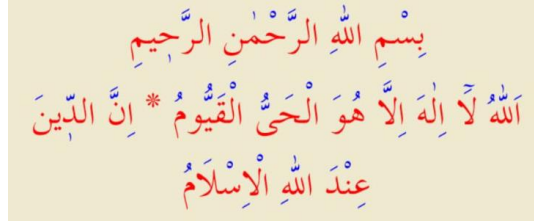 بِسْمِ اللّٰهِ الرَّحْمٰنِ الرَّح۪يمِ
اَللّٰهُ لَٓا اِلٰهَ اِلَّا هُوَ الْحَىُّ الْقَيُّومُ * اِنَّ الدّ۪ينَ
عِنْدَ اللّٰهِ الْاِسْلَامُ